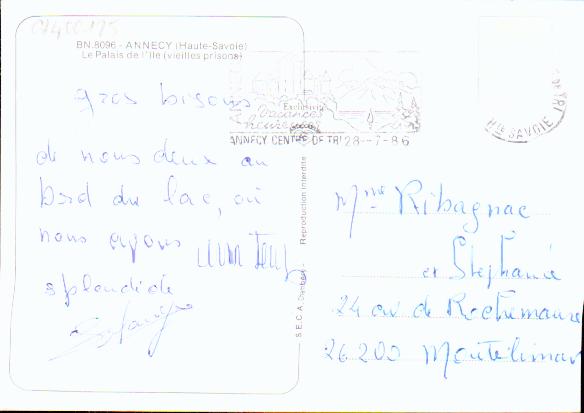 CA400175
BN.8096 - ANNECY (Haute-Savoie)
Le Palais de l'Ile (vieilles prisons)
gros bisous
de nous deux au
bord du lac, où
nous avons un temps
splendide
Vacances
heureuses
ANNECY CENTRE DE TRI 28-7-86
Hte SAVOIE
S.E.C.A. Chambéry - Reproduction interdite
Mme Ribagnac
et Stéphanie
24 av de Rochemaure
26200 Montélimar